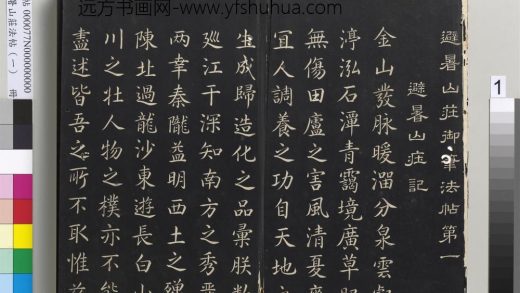 远方书画网-www.yfshuhua.com
避暑山莊御筆法帖第一
避暑山莊記
金山發脉暖溜分泉雲壑
渟泓石潭青靄境廣草肥
無傷田廬之害風清夏爽
宜人調養之功自天地之
生成歸造化之品彙朕數
廵江干深知南方之秀麗
两幸秦隴益明西土之殫
陳北過龍沙東遊長白山
川之壮人物之樸亦不能
盡述皆吾之所不取惟兹
帖 000077N000000000
暑山莊法帖(一) 冊
1